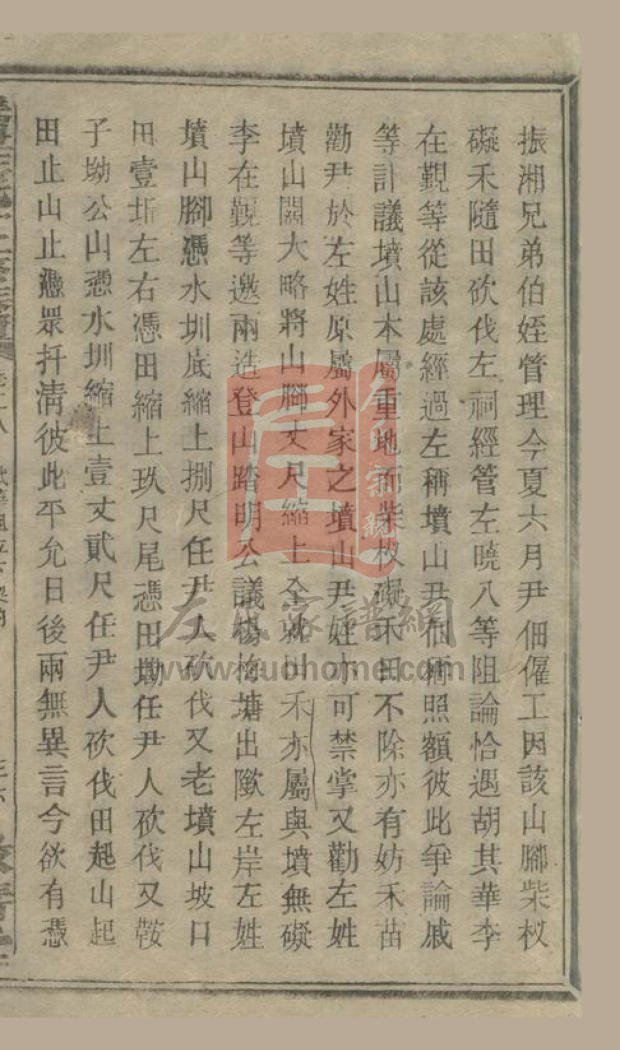 振湘兄弟伯姪管理今夏六月尹佃僱工因該山腳柴杈
礙禾隨田砍伐左祠經管左曉八等阻論恰遇胡其華李
在觀等從該處經過左稱墳山尹佃稱照額彼此爭論戚
等計議墳山本屬重地而柴杈礙禾田不除亦有妨禾苗
勸尹於左姓原屬外家之墳山尹姓亦可禁掌又勸左姓
墳山闊大略將山腳丈尺縮上全就山禾亦屬與墳無礙
李在觀等邀兩造登山踏明公議楊梅塘出陂左岸左姓
墳山腳憑水圳底縮上捌尺任尹人砍伐又老墳山坡口
田壹坵左右憑田縮上玖尺尾憑田墈任尹人砍伐又鞍
子坳公山憑水圳縮上壹丈貳尺任尹人砍伐田起山起
田止山止憑眾扦清彼此平允日後兩無異言今欲有憑
左氏家譜網
www.zuohome.com